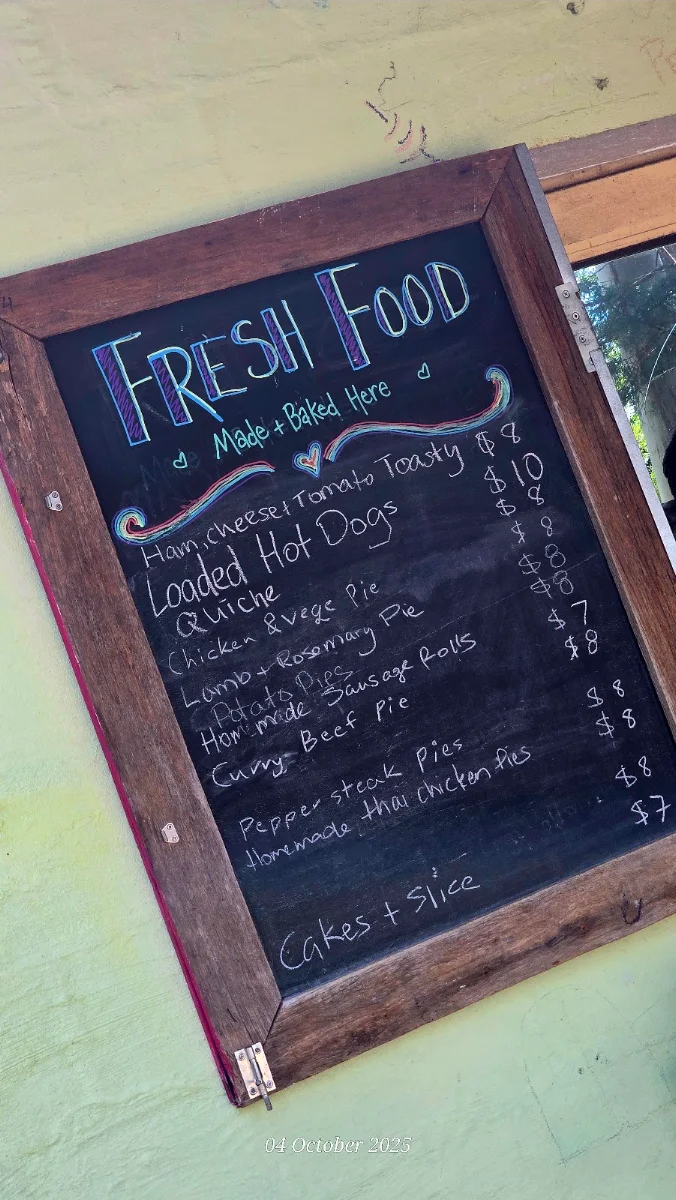 FRESH FOOD
Made + Baked Here
Ham, cheese + Tomato Toasty $8
Loaded Hot Dogs $10
Quiche $8
Chicken & vege Pie $8
Lamb + Rosemary Pie $8
Potato Pies $8
Homemade Sausage Rolls $7
Curry Beef Pie $8
Pepper steak Pies $8
Homemade thai chicken Pies $8
$8
Cakes + Slice $7
04 October 2025